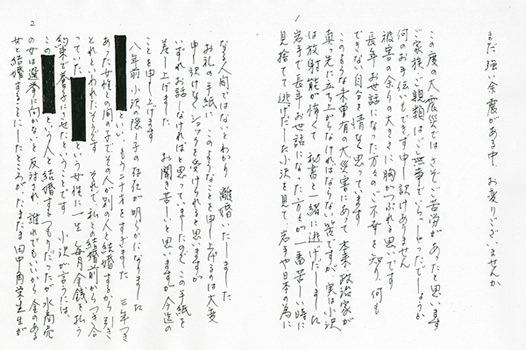 1
まだ強い余震がある中、お変りございませんか
この度の大震災ではさぞご苦労があったと思います
ご家族、ご親類はご無事でいらっしゃったでしょうか
何のお手伝いもできず申し訳ありません
被害の余りの大きさに胸がつぶれる思いです
長年お世話になった方々のご不幸を知り、何も
できない自分を情無く思っています
このような未曾有の大災害にあって本来、政治家が
真っ先に立ち上がらなければならない筈ですが、実は小沢
は放射能が怖くて秘書と一緒に逃げだしました
岩手で長年お世話になった方々が一番苦しい時に
見捨てて逃げだした小沢を見て、岩手や日本の為に
2
なる人間ではないとわかり離婚いたしました
お礼の手紙にこのようなことを申し上げるのは大変
申し訳けなくショックを受けられると思いますが
いずれお話しなければと思っていましたのでこの手紙を
差し上げました お聞き苦しいと思いますが今迄の
ことを申し上げます
八年前小沢の隠し子の存在が明らかになりました
といい、もう二十才をすぎました 三年つき
あった女性との間の子でその人が別の人と結婚するから引き
とれといわれたそうです それで私との結婚前からつき合
っていた という女性に一生毎月金銭を払う
約束で養子にさせたということです 小沢が言うには、
この という人と結婚するつもりだったが水商売
の女は選挙に向かないと反対され、誰れでもいいから金のある
女と結婚することにしたところが、たまたま田中角栄先生が